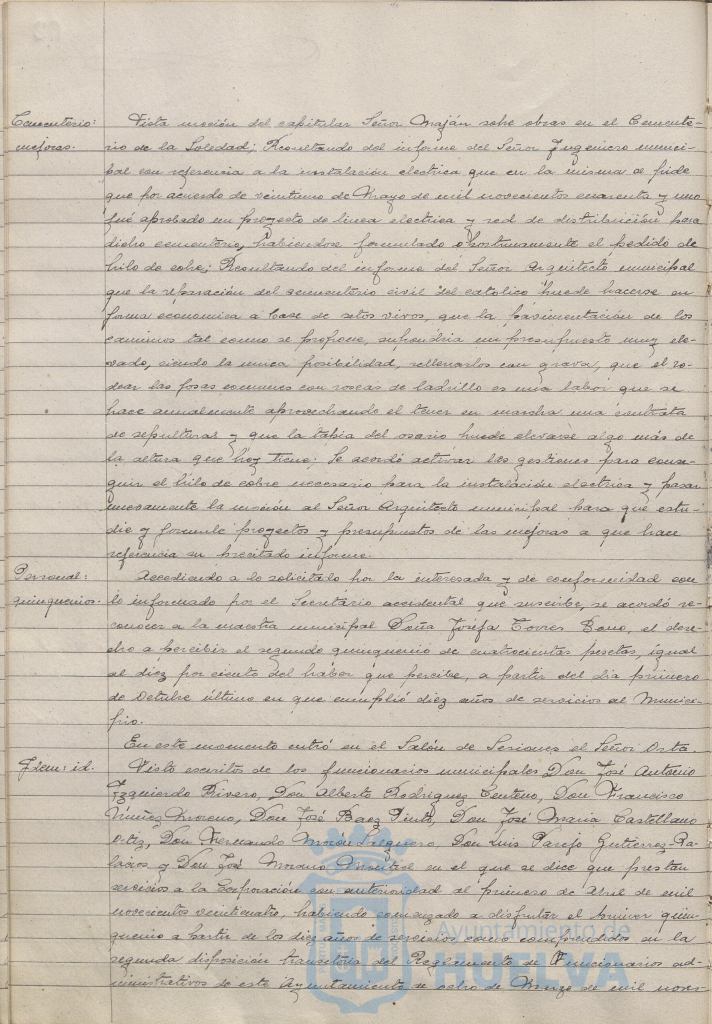 Cementerio: Vista moción del capitular Señor Maján sobre obras en el Cemente-
mejoras. rio de la Soledad; Resultando del informe del Señor Ingeniero munici-
pal con referencia a la instalación electrica que en la misma se pide
que por acuerdo de veintiuno de Mayo de mil novecientos cuarenta y uno
fué aprobado un proyecto de linea electrica y red de distribución para
dicho cementerio, habiendose formulado oportunamente el pedido de
hilo de cobre; Resultando del informe del Señor Arquitecto municipal
que la reparación del cementerio civil del catolico puede hacerse en
forma economica a base de setos vivos, que la pavimentación de los
caminos tal como se propone, supondria un presupuesto muy ele-
vado, siendo la unica posibilidad, rellenarlos con grava, que el ro-
dear las fosas comunes con roscas de ladrillo es una labor que se
hace anualmente aprovechando el tener en marcha una contrata
de sepulturas y que la tapia del osario puede elevarse algo más de
la altura que hoy tiene; Se acordó activar las gestiones para conse-
guir el hilo de cobre necesario para la instalación electrica y pasar
nuevamente la moción al Señor Arquitecto municipal para que estu-
die y formule proyectos y presupuestos de las mejoras a que hace
referencia su precitado informe.
Personal: Accediendo a lo solicitado por la interesada y de conformidad con
quinquenios. lo informado por el Secretario accidental que suscribe, se acordó re-
conocer a la maestra municipal Doña Josefa Torres Bono, el dere-
cho a percibir el segundo quinquenio de cuatrocientas pesetas, igual
al diez por ciento del haber que percibe, a partir del día primero
de Octubre último en que cumplió diez años de servicios al Munici-
pio.
En este momento entró en el Salón de Sesiones el Señor Orta
Idem: id. Visto escritos de los funcionarios municipales Don José Antonio
Izquierdo Rivero, Don Alberto Rodriguez Centeno, Don Francisco
Núñez Moreno, Don José Baez Pinto, Don José Maria Castellano
Ortiz, Don Fernando Morón Salguero, Don Luis Parejo Gutierrez-Pa-
lacios y Don José Moreno Montiel en el que se dice que prestan
servicios a la Corporación con anterioridad al primero de Abril de mil
novecientos veinticuatro, habiendo comenzado a disfrutar el primer quin-
quenio a partir de los diez años de servicios como comprendidos en la
segunda disposición transitoria del Reglamento de Funcionarios ad-
ministrativos de este Ayuntamiento de ocho de Marzo de mil nove-
Ayuntamiento de
HUELVA